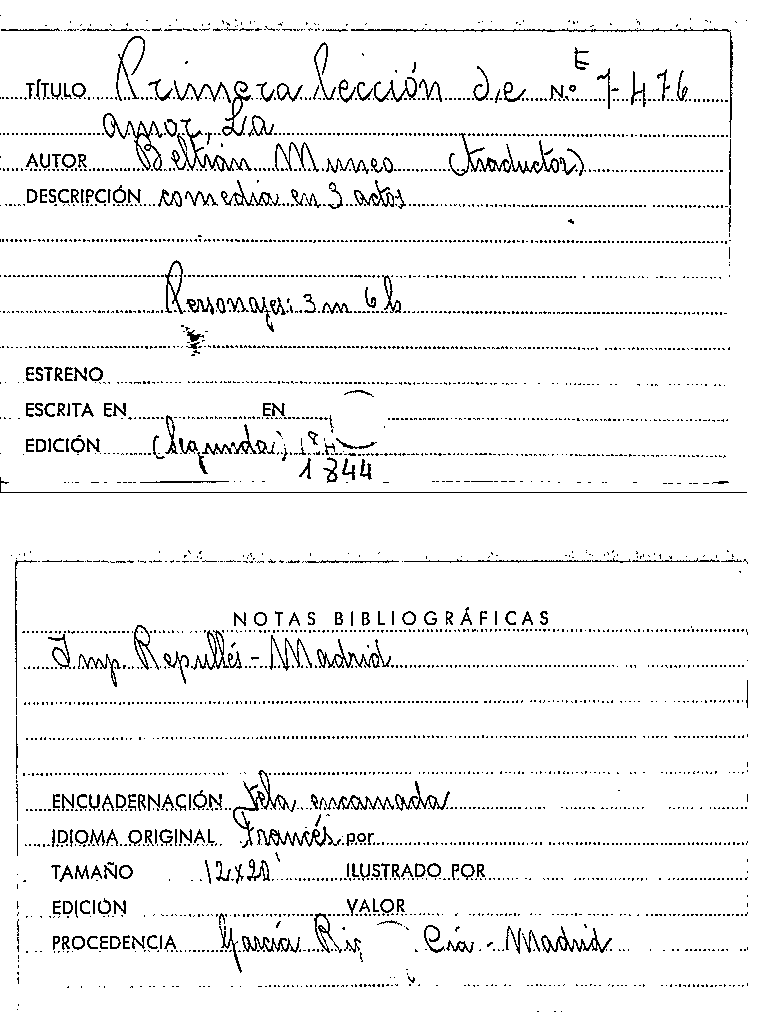 TÍTULO Primera lección de N.º E 7-476
amor, La
AUTOR Beltrán Muneo (traductor)
DESCRIPCIÓN comedia en 3 actos
Personajes: 3 m 6 h
ESTRENO
ESCRITA EN EN
EDICIÓN (Segunda)
1844
NOTAS BIBLIOGRÁFICAS
Imp. Repullés - Madrid
ENCUADERNACIÓN tela encarnada
IDIOMA ORIGINAL Francés por
TAMAÑO 12x20 ILUSTRADO POR
EDICIÓN VALOR
PROCEDENCIA García Ri Cía - Madrid